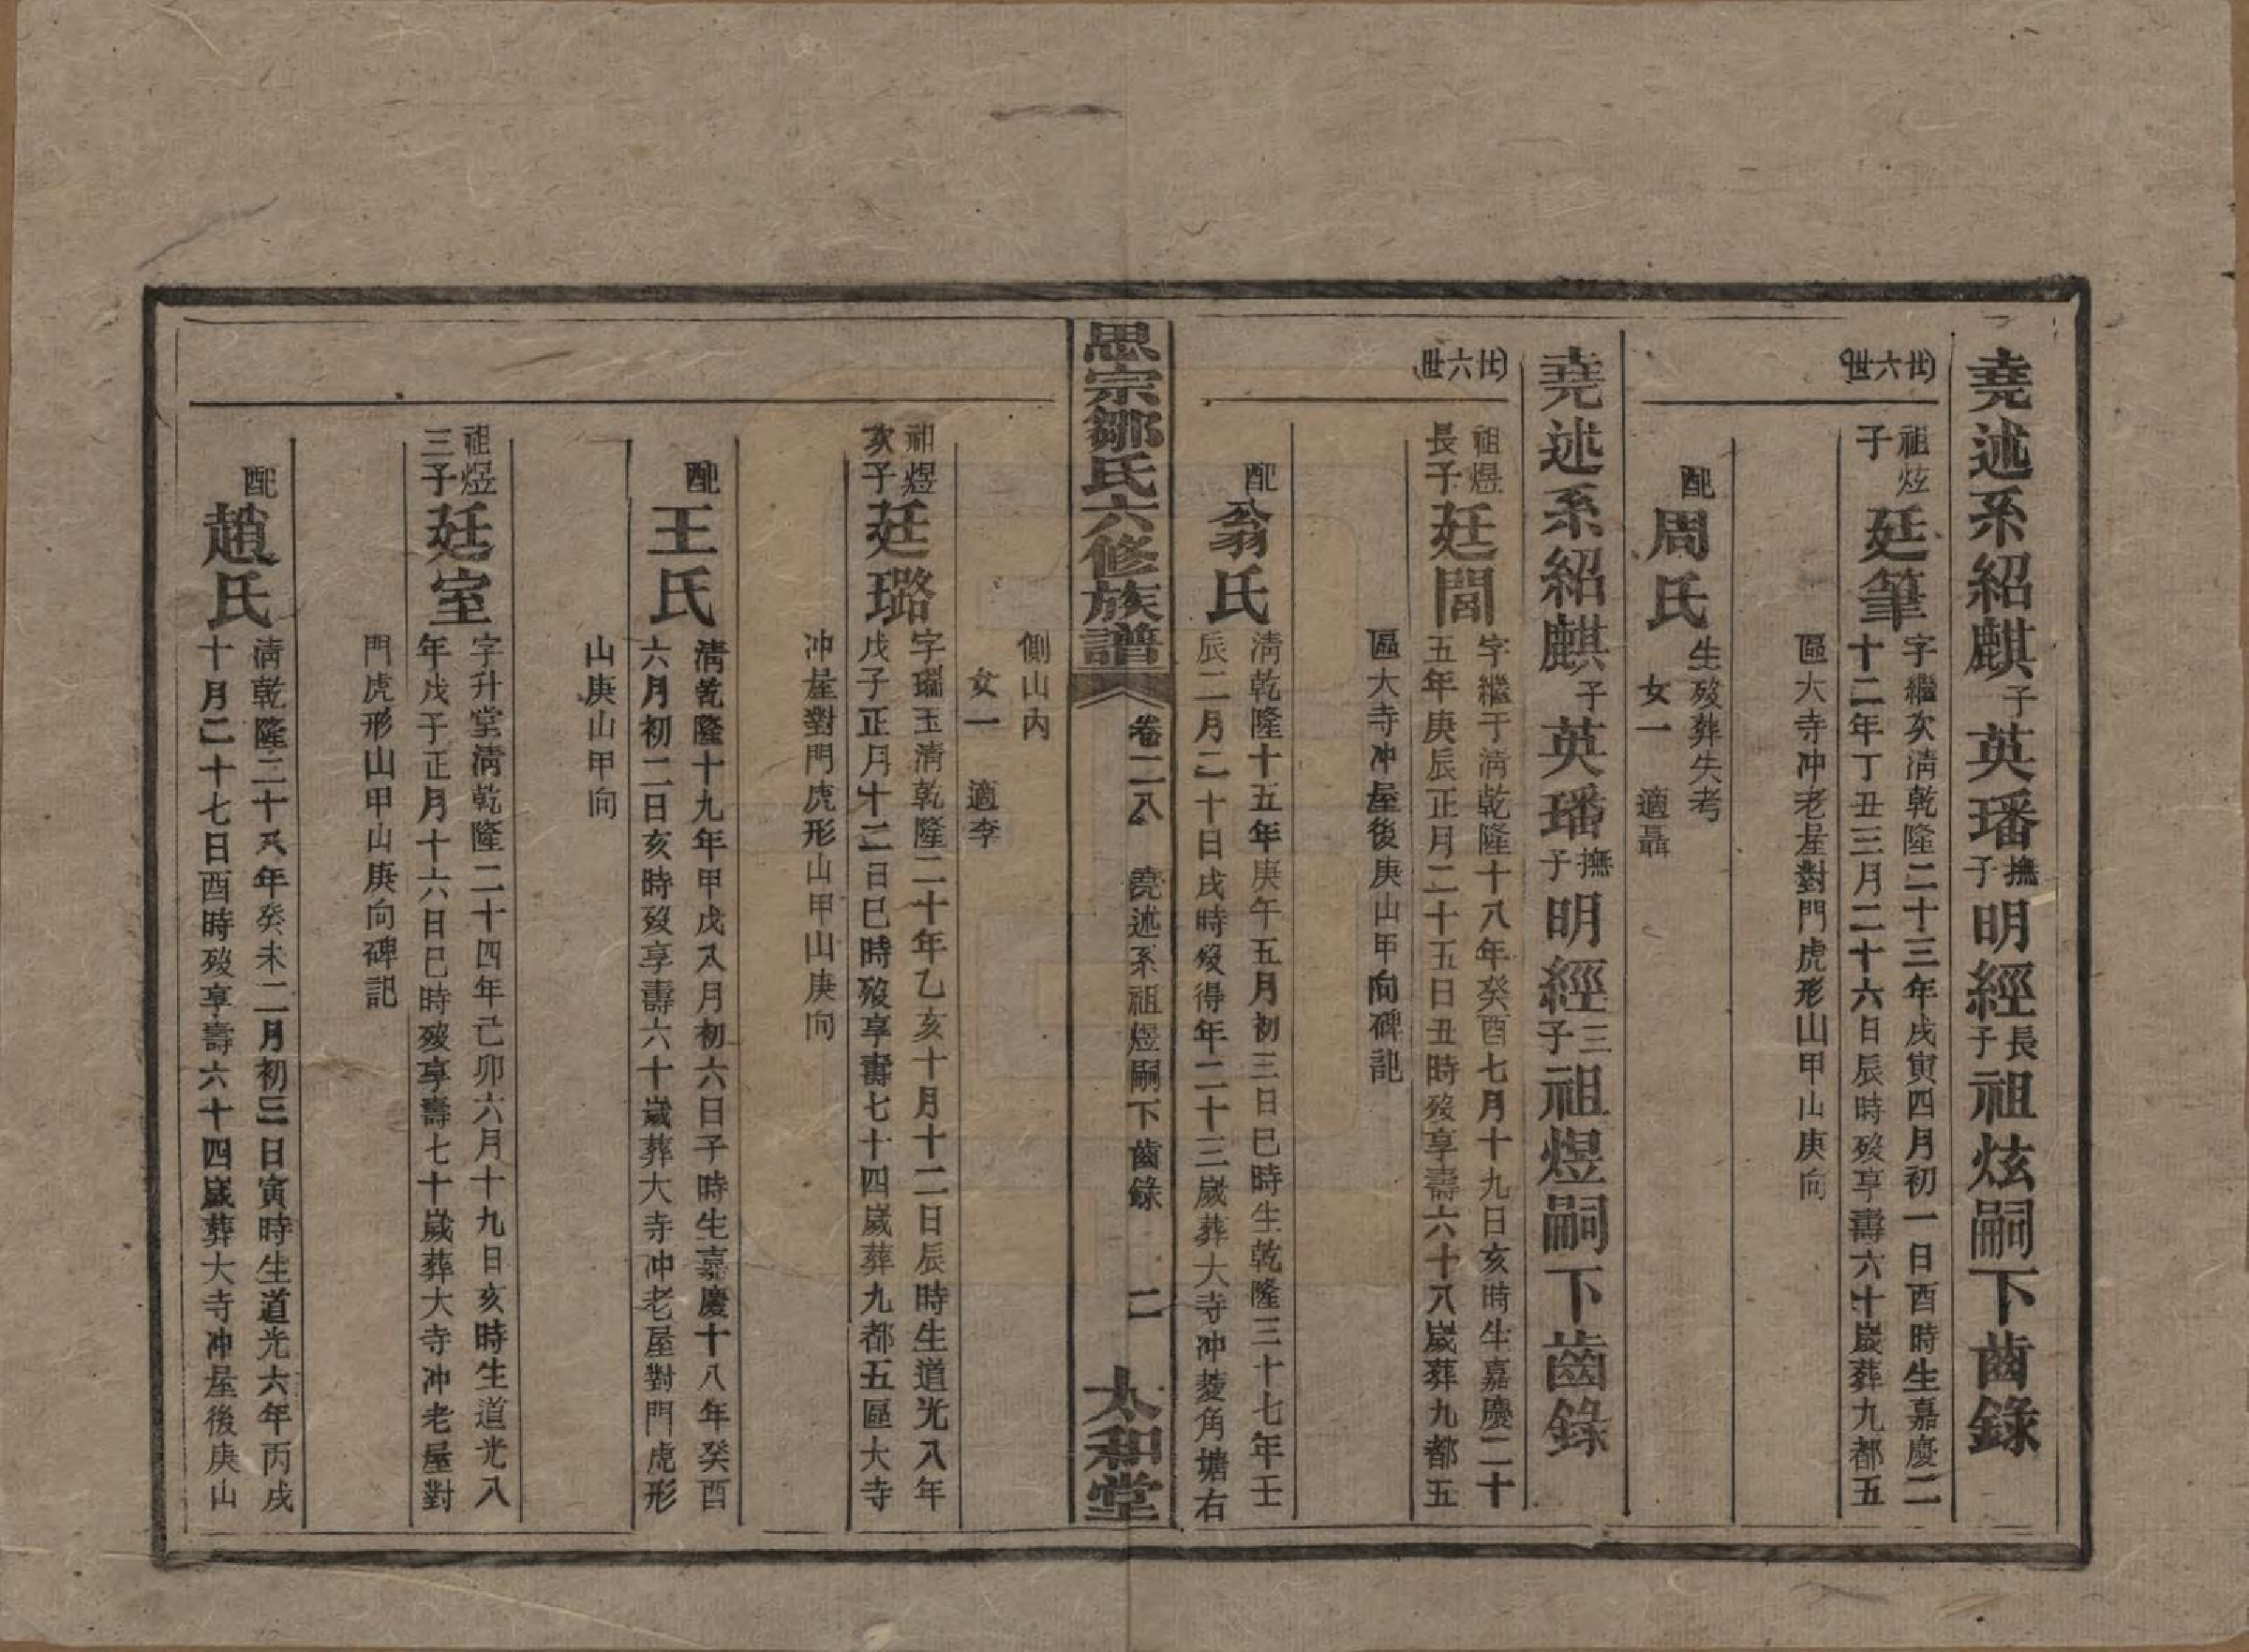 堯述系紹麒子英璠撫子明經長子祖炫嗣下齒錄
廿六世
祖炫子廷筆字繼次清乾隆二十三年戊寅四月初一日酉時生嘉慶二
十二年丁丑三月二十六日辰時歿享壽六十歲葬九都五
區大寺冲老屋對門虎形山甲山庚向
配周氏生歿葬失考
女一 適聶
堯述系紹麒子英璠撫子明經三子祖煜嗣下齒錄
廿六世
祖煜長子廷閭字繼于清乾隆十八年癸酉七月十九日亥時生嘉慶二十
五年庚辰正月二十五日丑時歿享壽六十八歲葬九都五
區大寺冲屋後庚山甲向碑記
配翁氏清乾隆十五年庚午五月初三日巳時生乾隆三十七年壬
辰二月二十日戌時歿得年二十三歲葬大寺冲菱角塘右
思宗鄒氏六修族譜 卷二八 堯述系祖煜嗣下齒錄 二 太和堂
側山內
女一 適李
祖煜次子廷璐字瑞玉清乾隆二十年乙亥十月十二日辰時生道光八年
戊子正月十二日巳時歿享壽七十四歲葬九都五區大寺
冲屋對門虎形山甲山庚向
配王氏清乾隆十九年甲戌八月初六日子時生嘉慶十八年癸酉
六月初二日亥時歿享壽六十歲葬大寺冲老屋對門虎形
山庚山甲向
祖煜三子廷室字升堂清乾隆二十四年己卯六月十九日亥時生道光八
年戊子正月十六日巳時歿享壽七十歲葬大寺冲老屋對
門虎形山甲山庚向碑記
配趙氏清乾隆二十八年癸未二月初三日寅時生道光六年丙戌
十月二十七日酉時歿享壽六十四歲葬大寺冲屋後庚山